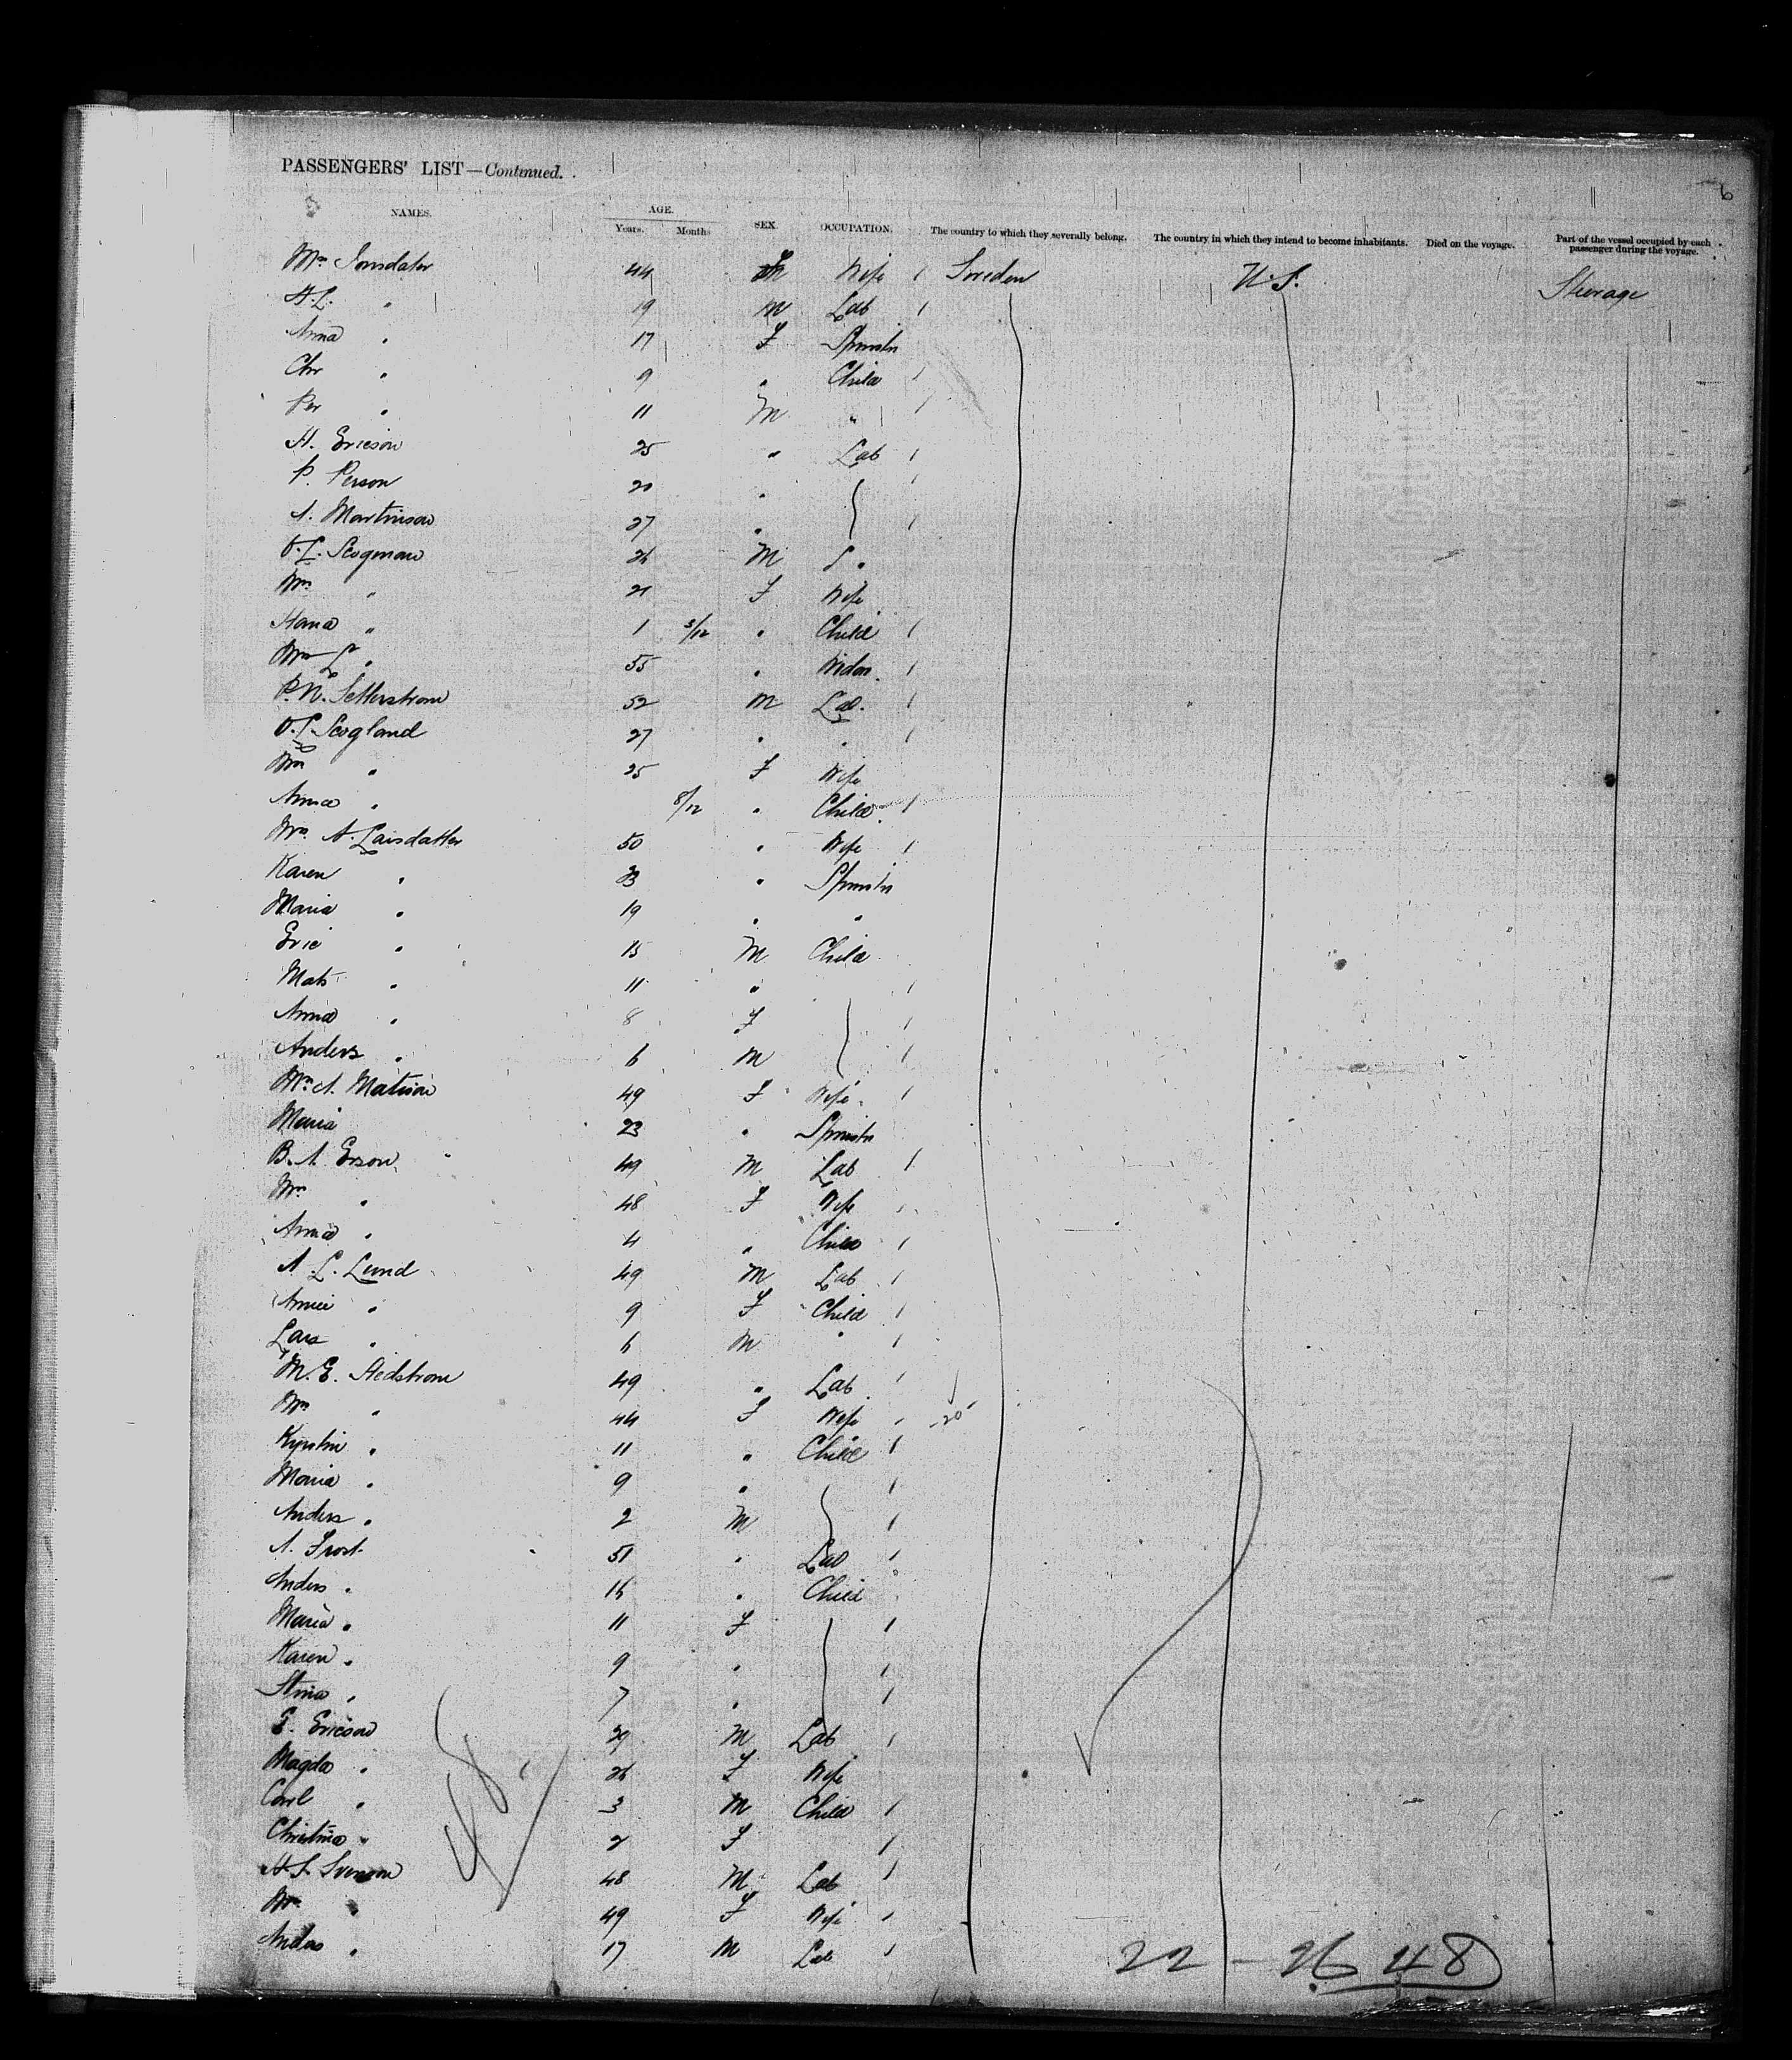 PASSENGERS' LIST—Continued.
6
NAMES. AGE. SEX OCCUPATION. The country to which they severally belong. The country in which they intend to become inhabitants. Died on the voyage. Part of the vessel occupied by each passenger during the voyage.
Years. Months
Mrs Jonsdater 44 F Wife / Sweden U.S. Steerage
A.L. " 19 M Lab /
Anna " 17 F Spinstr
Chr " 9 " Child /
Per " 11 M " /
A. Ericson 25 " Lab /
P. Person 20 " /
A. Martinson 27 " /
O.L. Scogman 26 M "
Mrs " 21 F Wife
Hana " 1 3/12 " Child /
Mrs L. " 55 " Widow /
P.N. Setterstrom 52 M Lab. /
O.L. Scogland 27 " " /
Mrs " 25 F Wife
Anna " 8/12 " Child /
Mrs A. Larsdatter 50 " Wife /
Karen " 23 " Spinstr
Maria " 19 " "
Eric " 15 M Child
Mats " 11 " /
Anna " 8 F /
Anders " 6 M /
Mrs A. Matison 49 F Wife /
Maria 23 " Spinstr
B.A. Erson 49 M Lab /
Mrs " 48 F Wife
Anna " 4 " Child /
A. L. Lund 49 M Lab /
Annie " 9 F Child /
Lars " 6 M " /
M.E. Hedstrom 49 " Lab /
Mrs " 44 F Wife - 20 -
Kyrstin " 11 " Child /
Maria " 9 " /
Anders " 2 M /
A. Frost 51 " Lab /
Anders " 16 " Child
Maria " 11 F /
Karen " 9 " /
Stina " 7 " /
E. Ericson 29 M Lab /
Magda " 26 F Wife
Carl " 3 M Child /
Christina " 2 F /
A.S. Svenson 48 M Lab /
Mrs " 49 F Wife /
Anders " 17 M Lab /
48
22 - 26 48